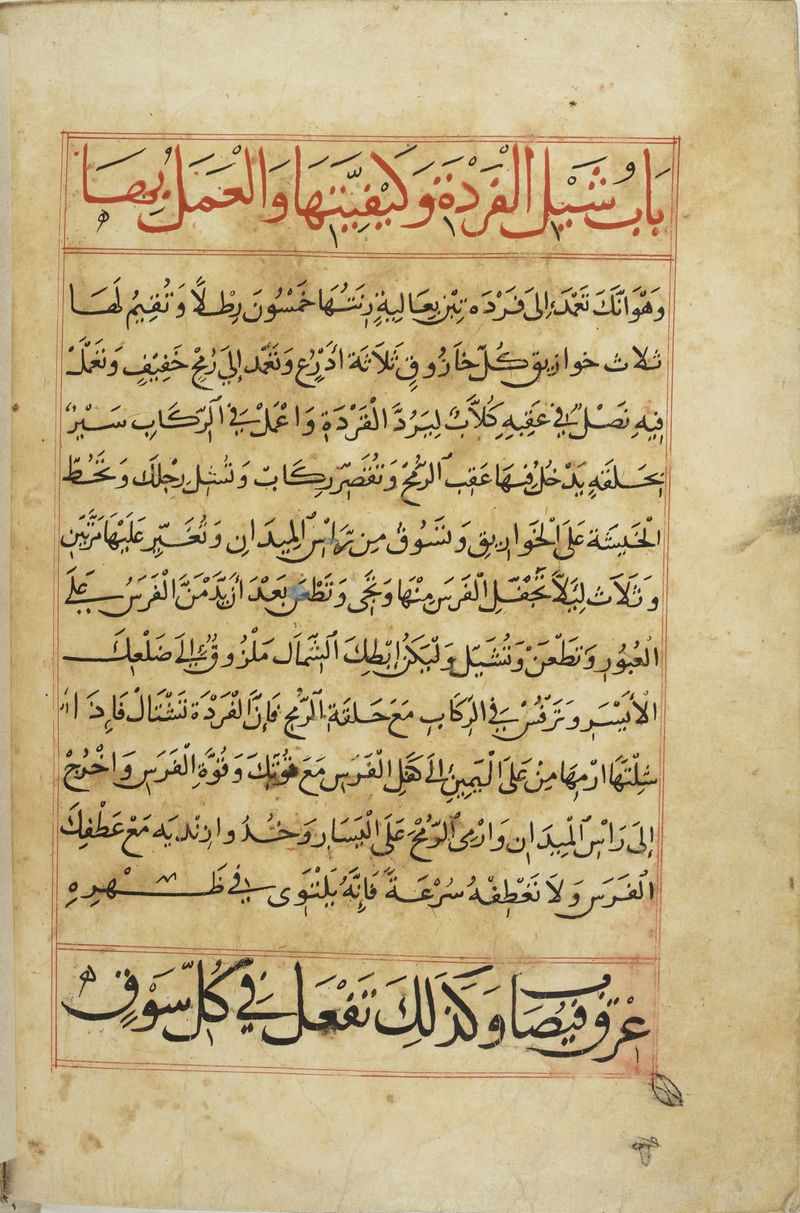 بَابُ شَيْلِ الْفَرْدَةِ وَكَيْفِيَّتِهَا وَالْعَمَلِ بِهَا
وَهْوَ انَّكَ تَعْمَدَ إِلىَ فَرْدَه تِبْنٍ بِعَالِيةٍ زِنَتُهَا خَمْسُونَ رِطْلاً وَتُقِيمُ لَهَا
ثلاث خوازيق كُلّ خَازُوقٍ ثَلَاثَة أَذْرُعٍ وَتَعْمَد إِلىَ رُمْحٍ خَفِيْفٍ وَتَعْمَلْ
فِيهِ نَصْلٌ فِي عَقِبِهِ كِلاَّبٌ لِيَرُدَّ الْفَرْدَةِ وَاعْمَلْ فِي الرِّكَابِ سَيْرٌ
بِحَلَقَهٍ يَدْخُلُ فِيهَا عَقِب الرُّمْحْ وَتُقَصِّرْ رِكَابْ وَتَشِيْل رِجْلَكَ وَتَحُطّ
الْخَيْشَة عَلَى الْخَوازِيقِ وَتَسُوقُ مِنْ رَأْسِ الْمِيدَانِ وَتُغَبِّر عَلَيْهَا مَرَّتَيْنِ
وَثَلَاث لِئَلاَّ تُجْفَلِ الْفَرَسِ مِنْهَا وَتَجِى وَتَطْعَن بَعْدَ أَنْ يَدَّمَنَ الْفَرَسُ عَلَى
الْعُبُوْرِ وَتَطْعَنْ وَتُشَيَلْ وَلْيَكُنْ إِبْطِكَ الشِّمَال مَلْزُوقٌ إِلىَ ضَلْعِكَ
الْأَيْسَرِ وَتَرْفُسْ فِي الرِّكَابِ مَعَ حَلقَة الرُّمْحِ فَإِنَّ الْفَرْدَة تَنْشَالْ فَإِذَا
شِلْتَهَا ارْمِهَا مِنْ عَلَى الْيَمِينِ إِلىَ كَفَلِ الْفَرَسِ مَعَ قُوَّتِكَ وَقُوَّةِ الْفَرَسِ وَاخْرُجْ
إِلىَ رَاْسِ الْمِيدَانِ وَارْمِى الرُّمْحَ عَلَى الْيَسَارِ وَخُدُ وازنديه مَعْ عَطْفِكَ
الْفَرَسِ وَلَا تَعْطِفْهُ سُرْعَةً فَإِنَّهُ يَلْتَوَى فِي ظَهْرِهِ
عِرْق فَيُصَاب وَكَذَلِكَ تَفْعَل فِي كُلِّ سَوْقٍ